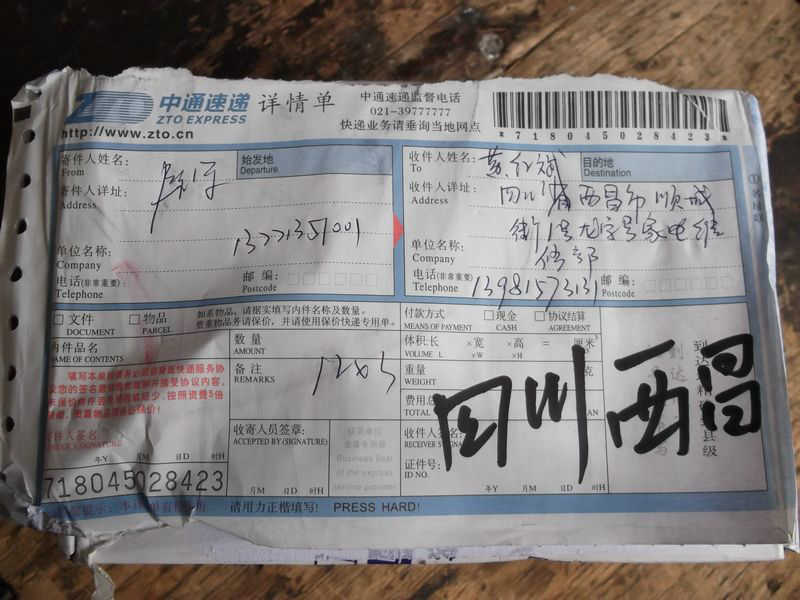 ZTO 中通速递 详情单
ZTO EXPRESS
http://www.zto.cn
中通速递监督电话
021-39777777
快递业务请垂询当地网点
*718045028423*
寄件人姓名:
From
始发地
Departure
寄件人详址:
Address
13771351001
单位名称:
Company
电话(非常重要):
Telephone
邮编:
Postcode
收件人姓名:
To
目的地
Destination
收件人详址:
Address
四川省西昌市顺城
街1号九字号家电维
修部
单位名称:
Company
电话(非常重要):
Telephone
13981573131
邮编:
Postcode
文件 物品
DOCUMENT PARCEL
如系物品,请据实填写内件名称及数量。
贵重物品请保价,并请使用保价快递专用单。
付款方式 现金 协议结算
MEANS OF PAYMENT CASH AGREEMENT
内件品名
NAME OF CONTENTS
数量
AMOUNT
体积长 ×宽 ×高 = 厘米³
VOLUME L ×W ×H
备注
REMARKS
重量
WEIGHT
费用总
TOTAL
收寄人员签章:
ACCEPTED BY (SIGNATURE)
收件人签名
RECEIVER SIGNA
证件号:
ID NO.
寄件人签名:
四川西昌
年Y 月M 日D 时H
718045028423
月M 日D 时H
年Y 月M 日D 时H
请用力正楷填写! PRESS HARD!